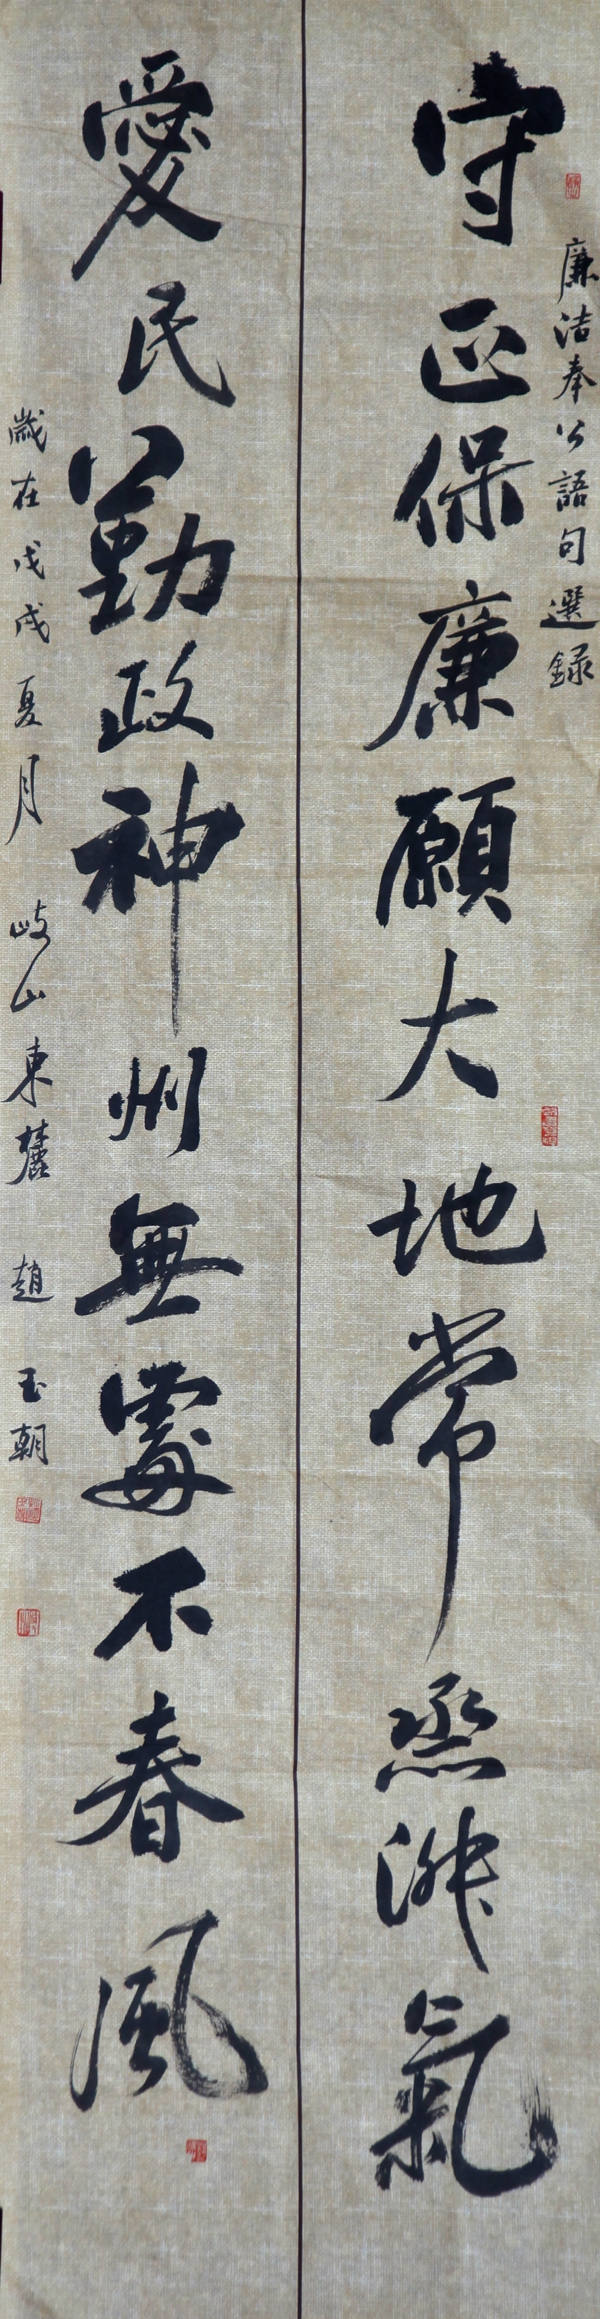 廉洁奉公語句選録
守正保廉願大地常烝淑氣
愛民勤政神州無處不春風
歲在戊戌夏月 岐山東麓 趙玉朝